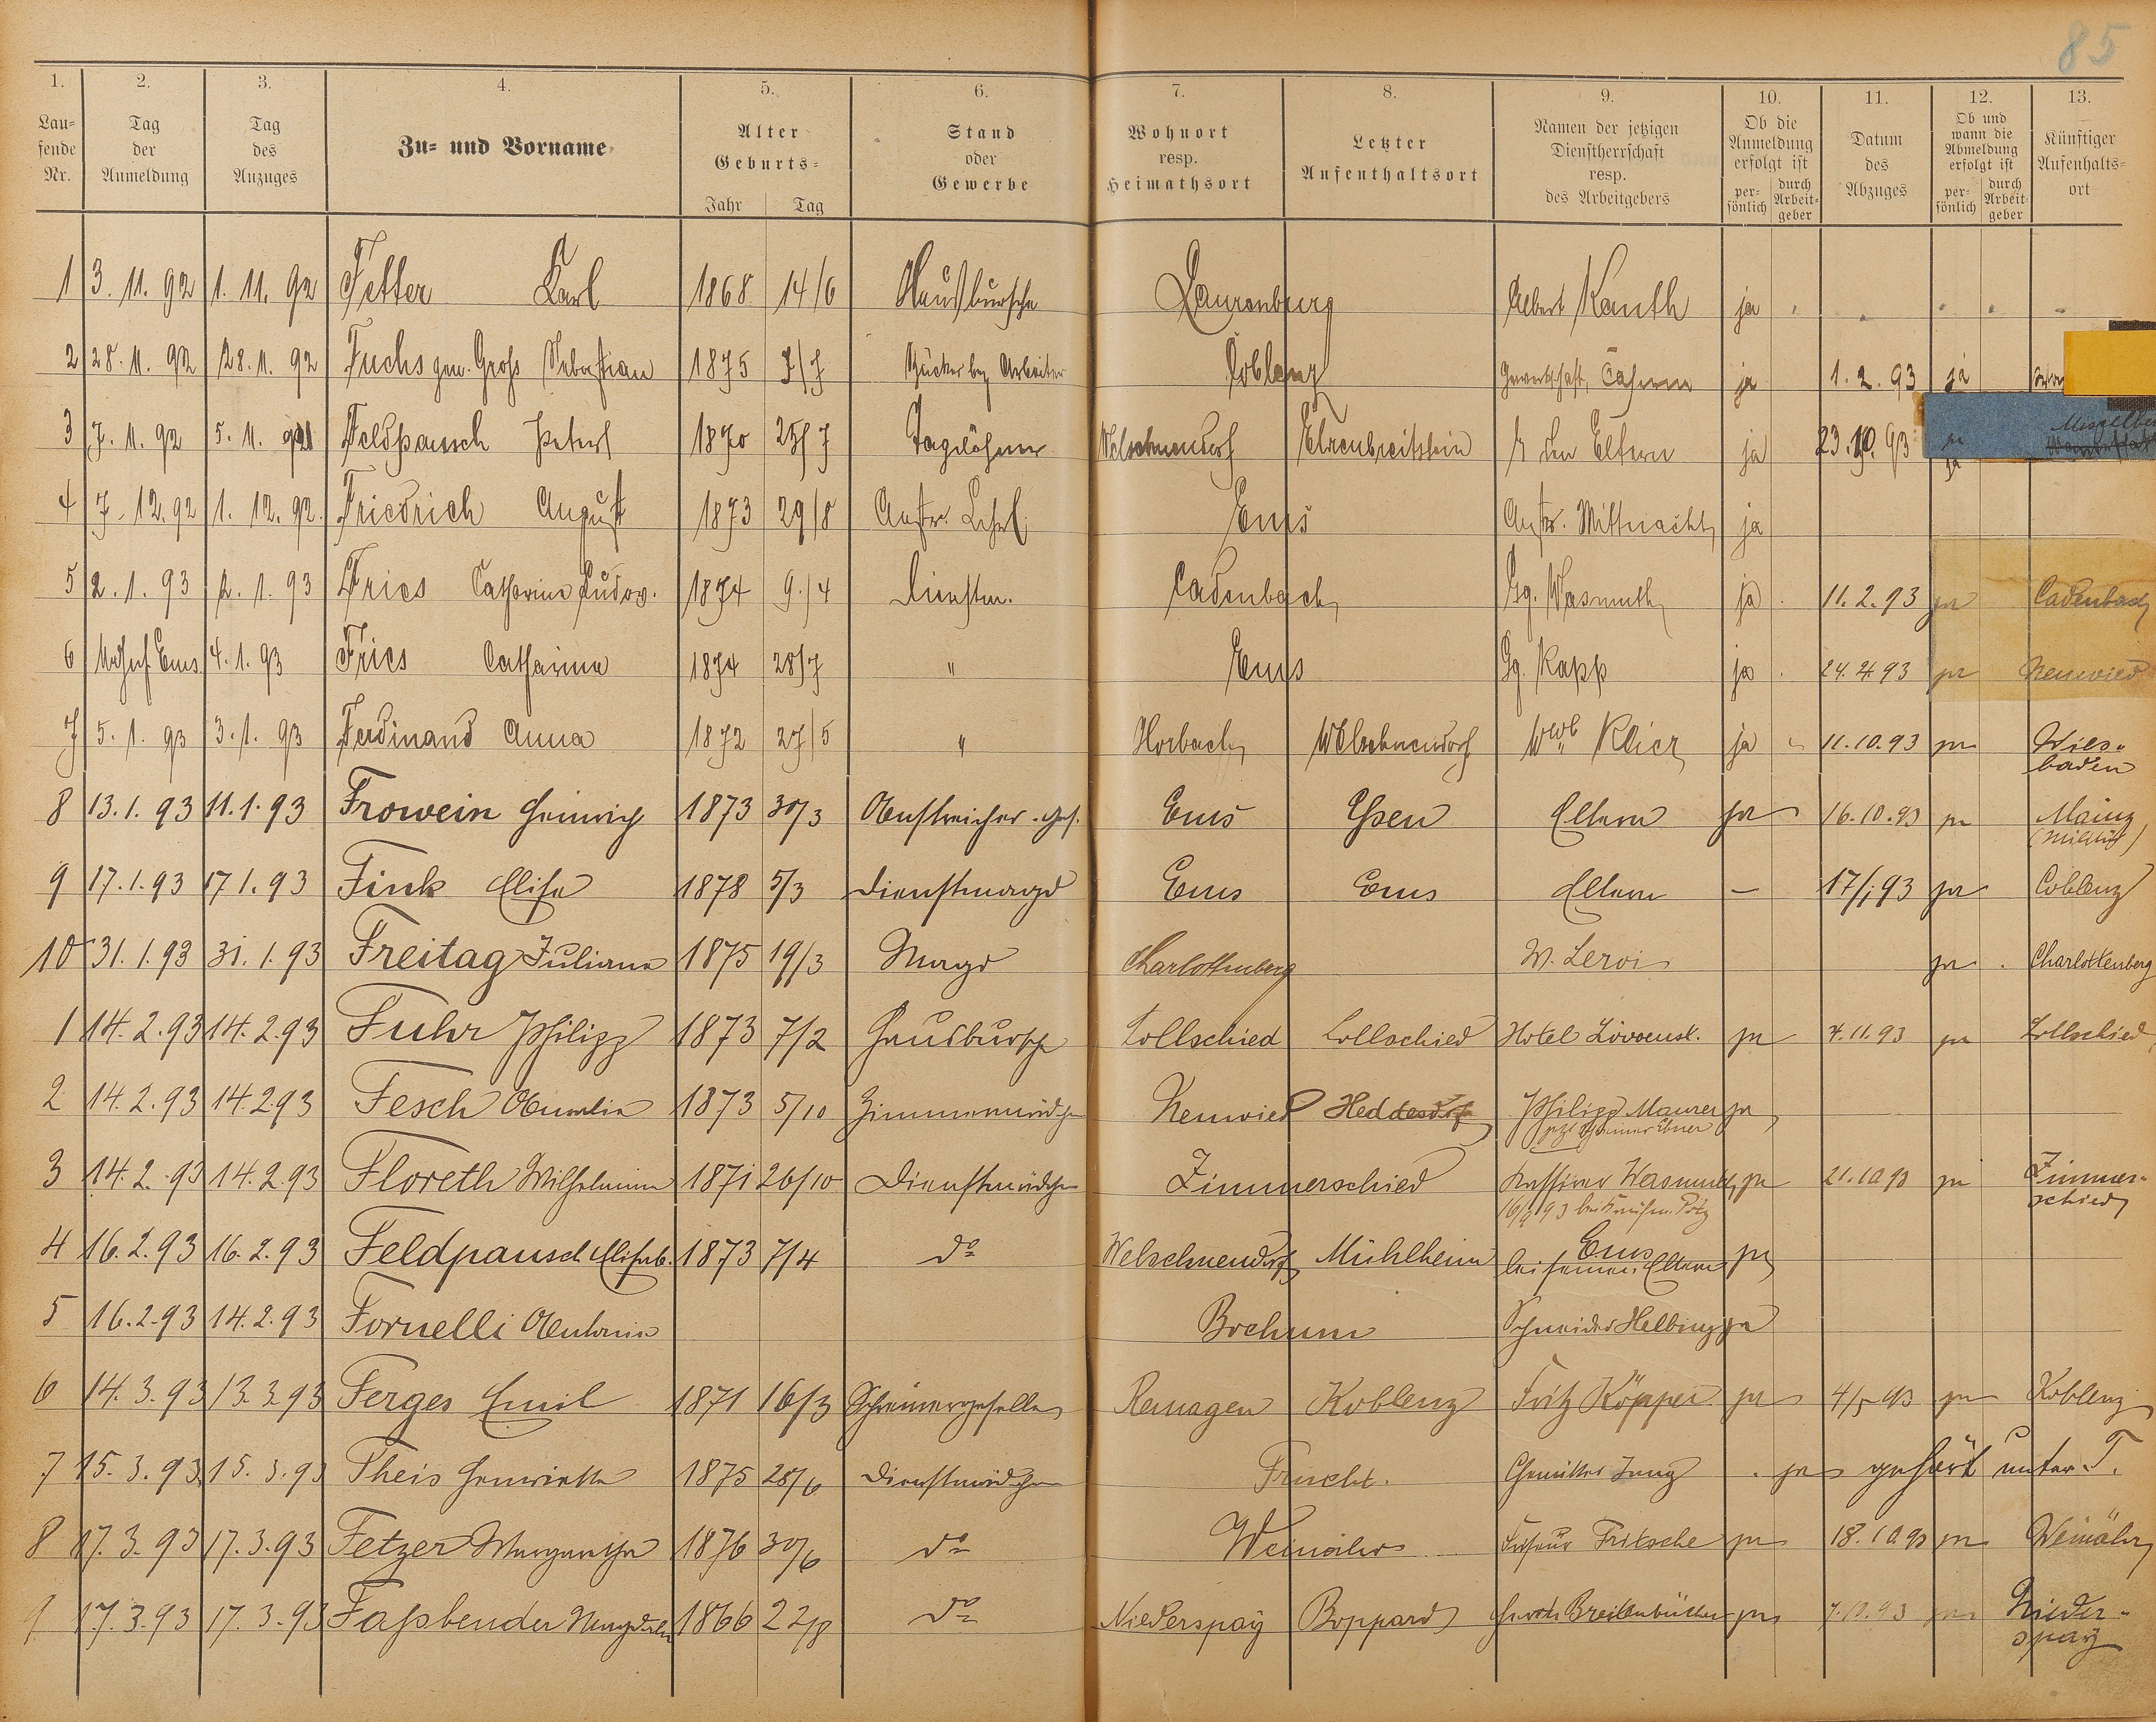 85
1. 2. 3. 4. 5. 6. 7. 8. 9. 10. 11. 12. 13.
Lau=
fende
Nr.
Tag
der
Anmeldung
Tag
des
Anzuges
Zu= und Vorname
Alter
Geburts=
Jahr Tag
Stand
oder
Gewerbe
Wohnort
resp.
Heimathsort
Letzter
Aufenthaltsort
Namen der jetzigen
Dienstherrschaft
resp.
des Arbeitgebers
Ob die
Anmeldung
erfolgt ist
per=
sönlich
durch
Arbeit=
geber
Datum
des
Abzuges
Ob und
wann die
Abmeldung
erfolgt ist
per=
sönlich
durch
Arbeit=
geber
Künftiger
Aufenthalts=
ort
1 3. 11. 92 1. 11. 92 Fetter Karl 1868 14/6 Hausbursche Laurenburg Albert Kauth ja
2 28. 11. 92 28. 11. 92 Fuchs gen. Groß Sebastian 1875 7/7 Arbeiter Coblenz ja 1. 2. 93 ja
3 7. 11. 92 5. 11. 92 Feldpausch Peter 1870 25/7 Taglöhner Welschneudorf Ehrenbreitstein den Eltern ja 23. 10. 93 ja
4 7. 12. 92 1. 12. 92. Friedrich August 1873 29/8 Anstr. Lehrl. Ems Anstr. Mittnacht ja
5 2. 1. 93 2. 1. 93 Fries Catharine Ludov. 1874 9./4 Dienstm. Cadenbach Gg. Wasmuth ja 11. 2. 93 ja Cadenbach
6 Ems 4. 1. 93 Fries Catharina 1874 28/7 " Ems Gg. Kapp ja 24. 4. 93 ja Neuwied
7 5. 1. 93 3. 1. 93 Ferdinand Anna 1872 27/5 " Horbach Welschneudorf Wwe Kleier ja 11. 10. 93 ja Wies-
baden
8 13. 1. 93 11. 1. 93 Frowein Heinrich 1873 30/3 Anstreicher. Ges. Ems Essen Eltern ja 16. 10. 93 ja Mainz
(Militär)
9 17. 1. 93 17 1. 93 Fink Elise 1878 5/3 Dienstmagd Ems Ems Eltern — 17/1 93 ja Coblenz
10 31. 1. 93 31. 1. 93 Freitag Juliane 1875 19/3 Magd Charlottenberg W. Leroi ja Charlottenberg
1 14. 2. 93 14. 2. 93 Fuhr Philipp 1873 7/2 Hausbursche Lollschied Lollschied Hotel Löwenst. ja 4. 11. 93 ja Lollschied
2 14. 2. 93 14. 2 93 Fesch Amalie 1873 5/10 Zimmermädchen Neuwied Heddesdorf Philipp Maurer ja
3 14. 2. 93 14. 2. 93 Floreth Wilhelmine 1871 26/10 Dienstmädchen Zimmerschied Kassirer Wasmuth ja 21. 10 93 ja Zimmer-
schied
16/9 93 bei
4 16. 2. 93 16. 2. 93 Feldpausch Elisab. 1873 7/4 do Welschneudorf Mühlheim Ems
bei seinen Eltern ja
5 16. 2. 93 14. 2. 93 Fornelli Antonie Bochum Schneider Helbing ja
6 14. 3. 93 13. 3. 93 Ferges Emil 1871 16/3 Schreinergeselle Remagen Koblenz Fritz Köpper ja 4/5 93 ja Koblenz
7 15. 3. 93 15. 3. 93 Theis Henriette 1875 28/6 Dienstmädchen Frücht. Jung ja gehört unter T.
8 17. 3. 93 17. 3. 93 Fetzer Margarethe 1876 30/6 do Weinähr Friseur Fritsche ja 18. 10. 93 ja Weinähr
9 17. 3. 93 17. 3. 93 Faßbender Magdalena 1866 22/8 do Niederspay Boppard Breitenbücher ja 7. 10. 93 ja Nieder-
spay